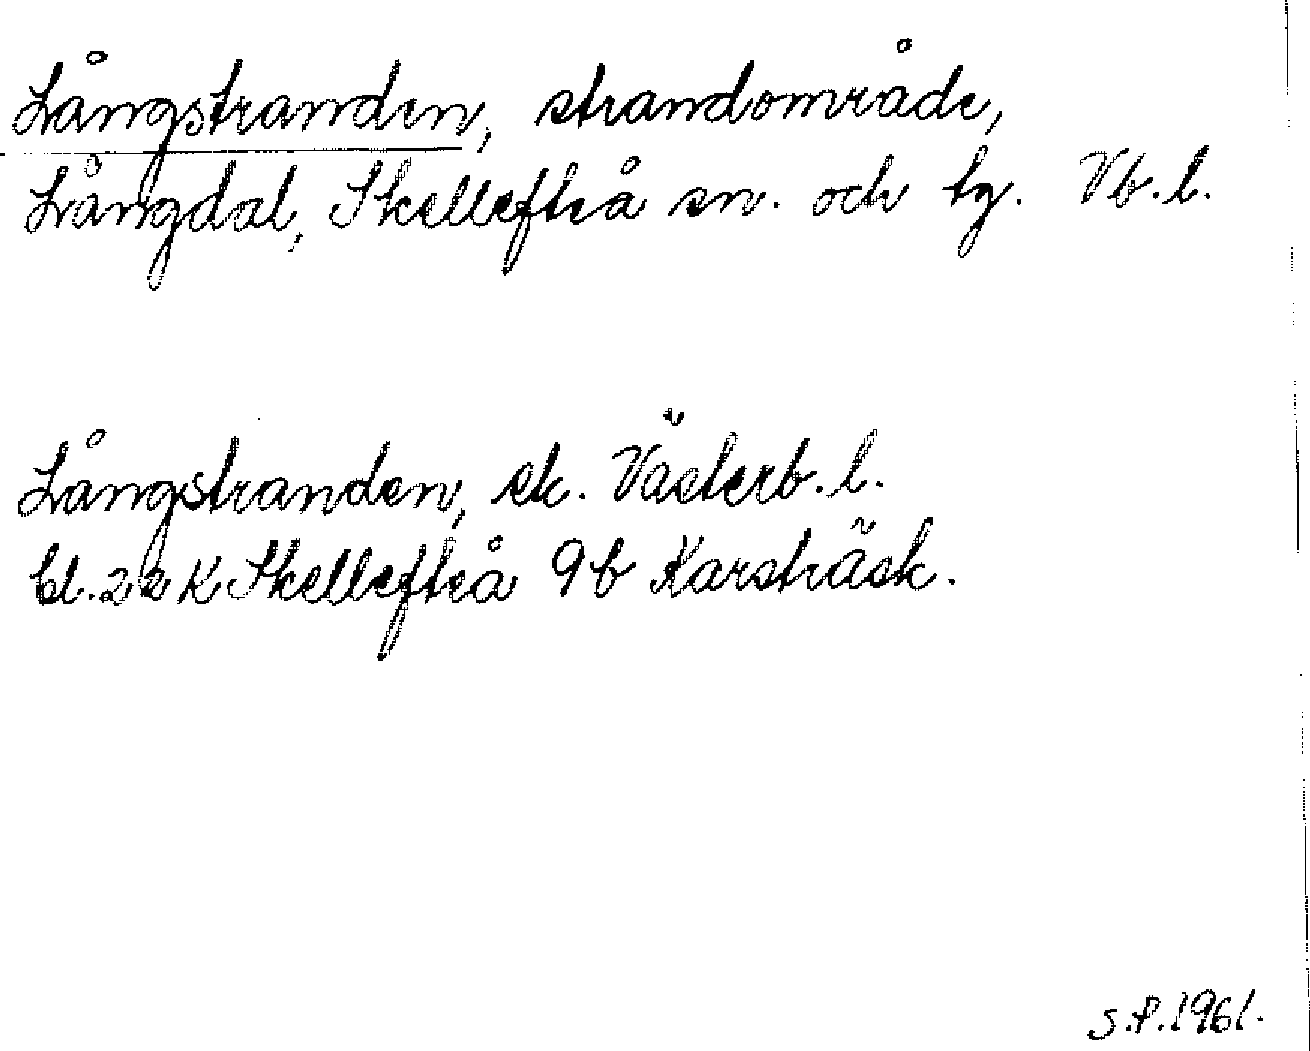 Långstranden, strandområde,
Långdal, Skellefteå sn. och tg. Vb.l.
Långstranden, ek. Västerb.l.
bl. 22 K Skellefteå 9b Karsträsk.
S.P. 1961.